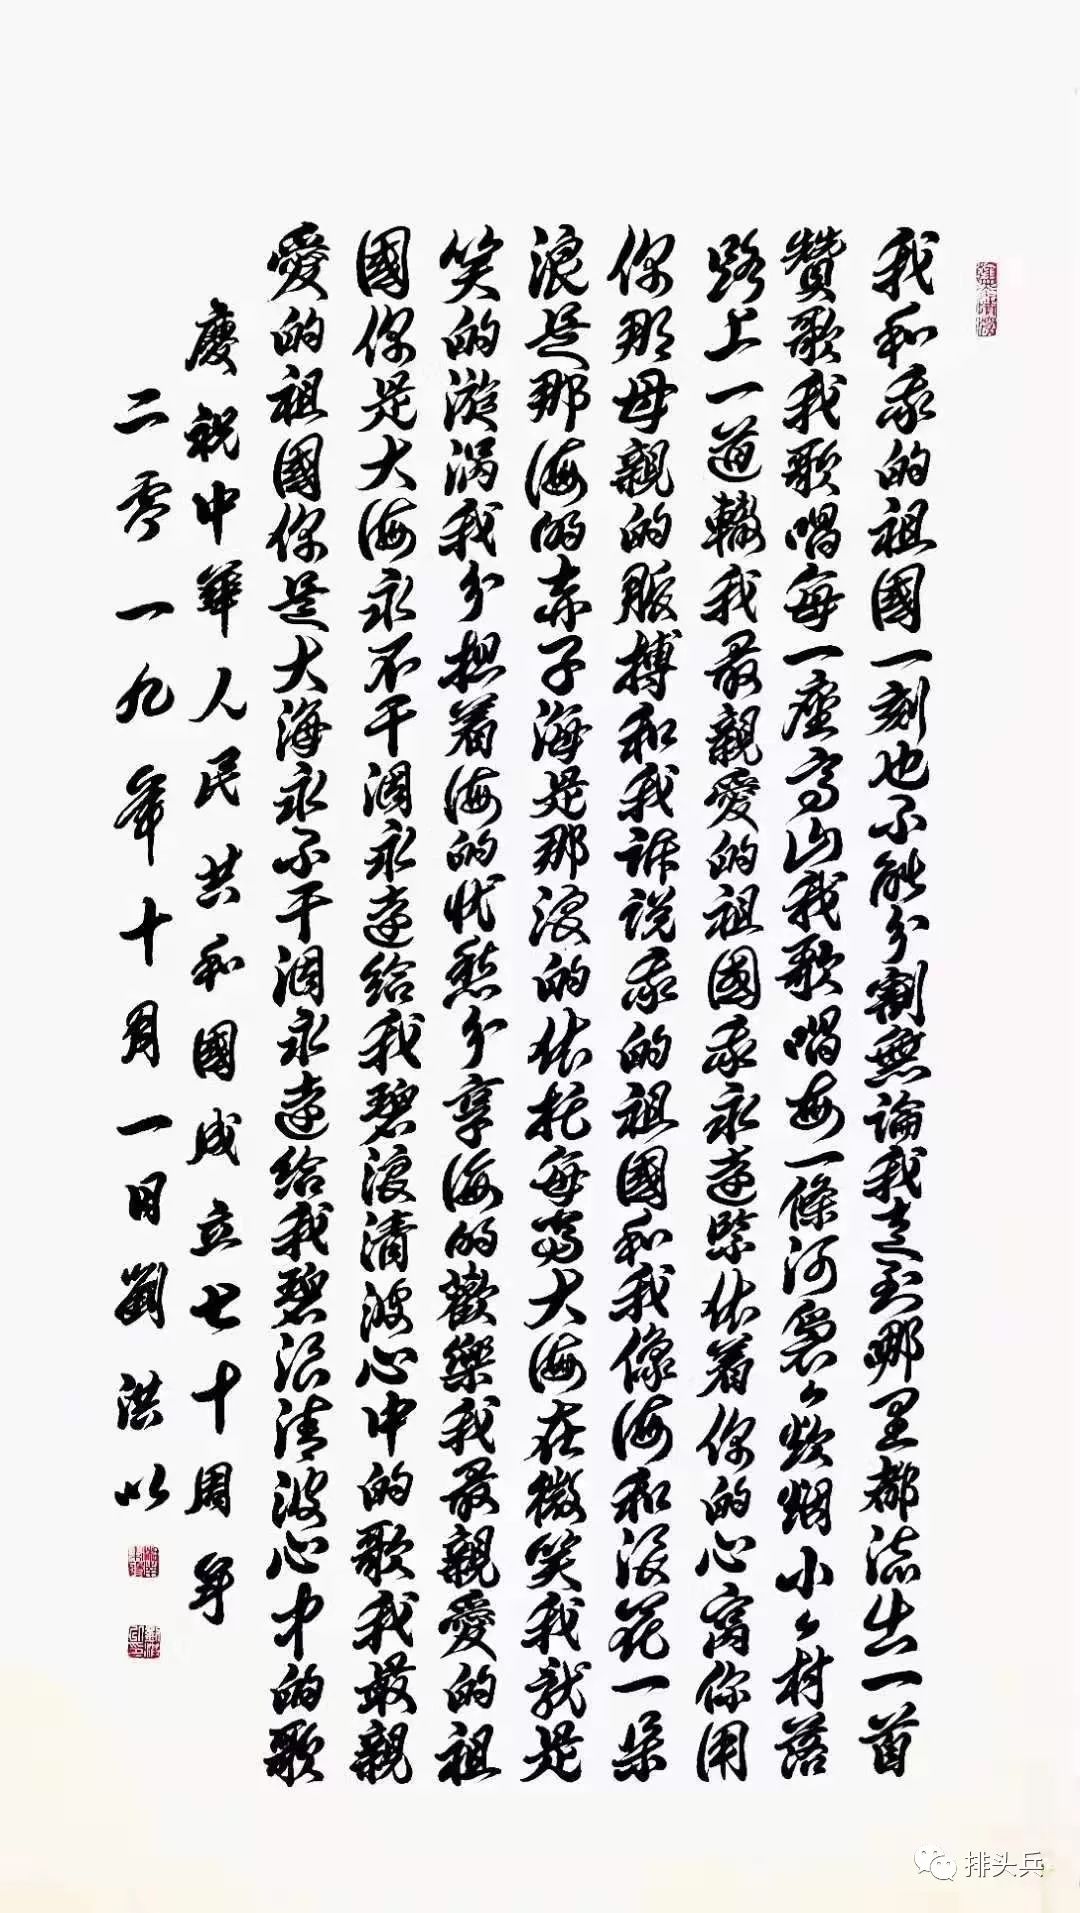 我和我的祖國一刻也不能分割無論我走到哪里都流出一首
贊歌我歌唱每一座高山我歌唱每一條河裊々炊烟小々村落
路上一道轍我最親愛的祖國我永遠緊依着你的心窩你用
你那母親的脈搏和我訴說我的祖國和我像海和浪花一朵
浪是那海的赤子海是那浪的依托每當大海在微笑我就是
笑的漩涡我分担着海的忧愁分享海的歡樂我最親愛的祖
國你是大海永不干涸永遠給我碧浪清波心中的歌我最親
愛的祖國你是大海永不干涸永遠給我碧浪清波心中的歌
慶祝中華人民共和國成立七十周年
二零一九年十月一日劉洪以
排头兵